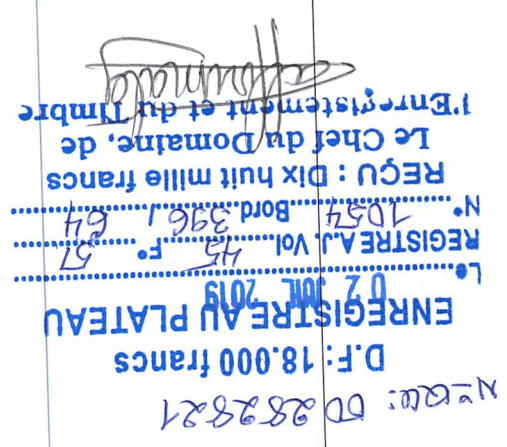 N° Qce: 00282821
D.F: 18.000 francs
ENREGISTRE AU PLATEAU
Le 02 JUIL 2019
REGISTRE A.J. Vol 45 F° 57
N° 1054 Bord 396 / 64
REÇU : Dix huit mille francs
Le Chef du Domaine, de
l'Enregistrement et du Timbre